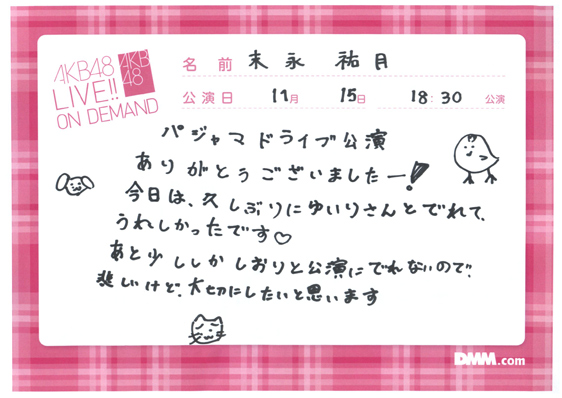 AKB48
LIVE!!
ON DEMAND
AKB
48
名前 末永 祐月
公演日 11月 15日 18:30 公演
パジャマドライブ公演
ありがとうございましたー!
今日は、久しぶりにゆいりさんとでれて、
うれしかったです♡
あと少ししかしおりと公演にでれないので、
悲しいけど、大切にしたいと思います
DMM.com